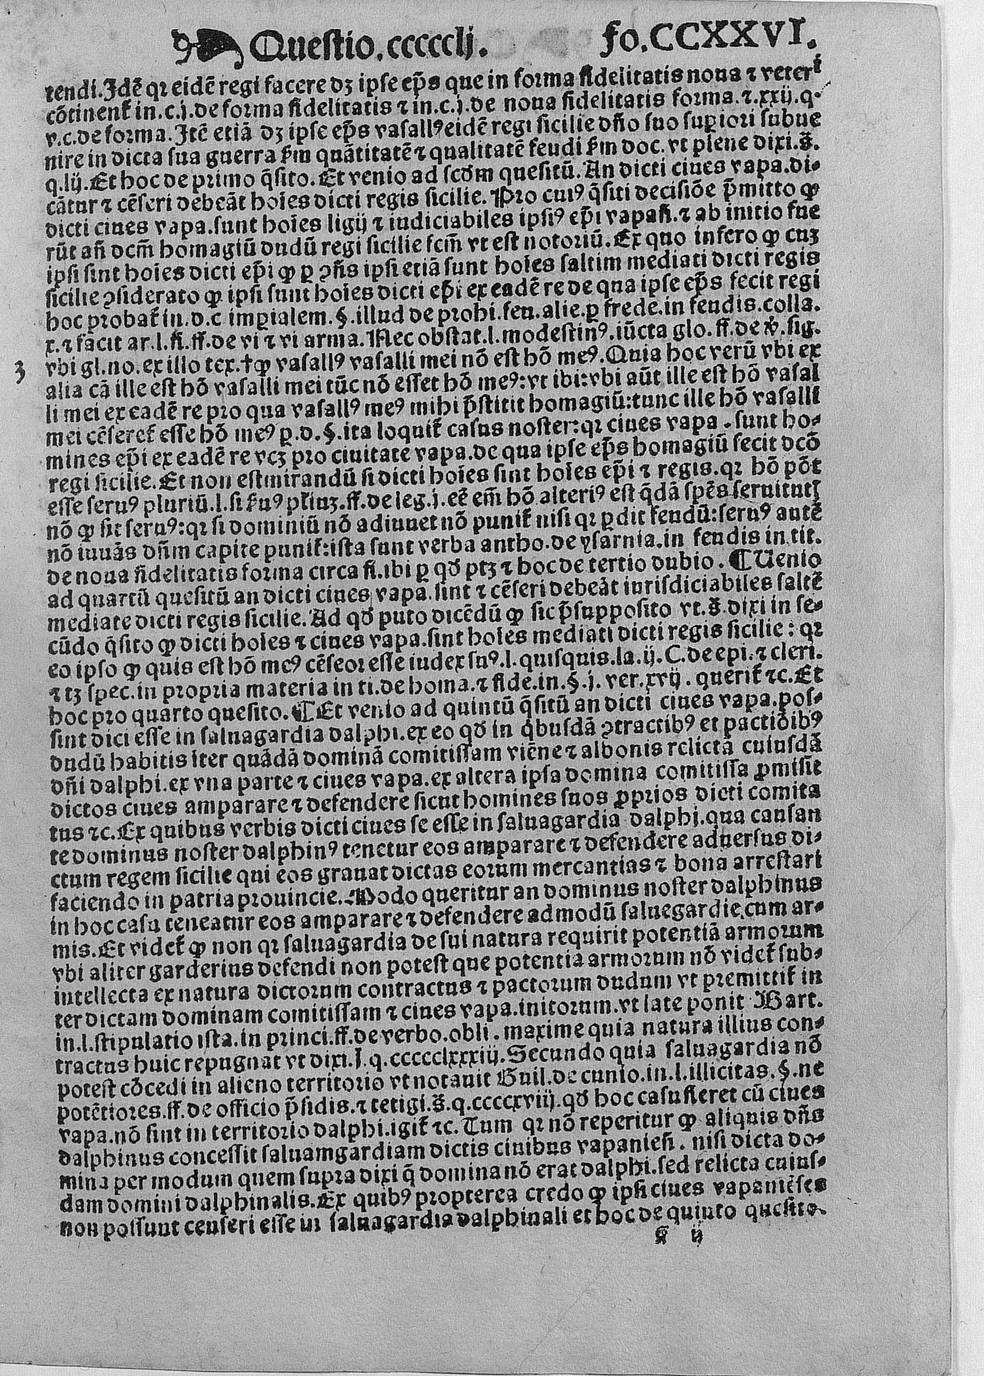 Questio.cccccclj. fo.CCXXVI.
tendi. Jdē qꝛ eidē regi facere dꝫ ipse ep̄s que in forma fidelitatis noua ⁊ veteri
cōtinent᷑ in.c.j.de forma fidelitatis ⁊ in.c.j.de noua fidelitatis forma.⁊.xxij.q.
v.c.de forma. Jtē etiā dꝫ ipse ep̄s vasallꝰ eidē regi sicilie dn̄o suo suꝑiori subue
nire in dicta sua guerra ẜm quātitatē ⁊ qualitatē feudi ẜm doc.vt plene dixi.s̄.
q.lij. Et hoc de primo q̄sito. Et venio ad scd̄m quesitū. An dicti ciues vapa.di-
cātur ⁊ cēseri debeāt hoīes dicti regis sicilie. Pro cuiꝰ q̄siti decisiōe p̄mitto ꝙ
dicti ciues vapa.sunt hoīes ligij ⁊ iudiciabiles ipsiꝰ ep̄i vapasi.⁊ ab initio fue
rūt an̄ dcm̄ homagiū dudū regi sicilie fcm̄ vt est notoriū. Ex quo infero ꝙ cuꝫ
ipsi sint hoīes dicti ep̄i ꝙ ꝑ ꝯn̄s ipsi etiā sunt hoīes saltim mediati dicti regis
sicilie ꝯsiderato ꝙ ipsi sunt hoīes dicti ep̄i ex eadē re de qua ipse ep̄s fecit regi
hoc probat᷑ in.d.c imꝑialem.§.illud de prohi.feu.alie.ꝑ frede.in feudis.colla.
x.⁊ facit ar.l.fi.ff.de vi ⁊ vi arma. Nec obstat.l.modestinꝰ.iūcta glo.ff.de v̄.sig.
3 vbi gl.no.ex illo tex.†ꝙ vasallꝰ vasalli mei nō est hō meꝰ. Quia hoc verū vbi ex
alia cā ille est hō vasalli mei tūc nō esset hō meꝰ:vt ibi:vbi aūt ille est hō vasal
li mei ex eadē re pro qua vasallꝰ meꝰ mihi p̄stitit homagiū:tunc ille hō vasalli
mei cēseret᷑ esse hō meꝰ ꝑ.d.§.ita loquit᷑ casus noster:qꝛ ciues vapa.sunt ho-
mines ep̄i ex eadē re vcꝫ pro ciuitate vapa.de qua ipse ep̄s homagiū fecit dcō
regi sicilie. Et non est mirandū si dicti hoīes sint hoīes ep̄i ⁊ regis.qꝛ hō pōt
esse seruꝰ pluriū.l.si ẜuꝰ pluꝝ.ff.de leg.j.eē em̄ hō alteriꝰ est q̄dā sp̄es seruitutꝭ
nō ꝙ sit seruꝰ:qꝛ si dominiū nō adiuuet nō punit᷑ nisi qꝛ ꝑdit feudū:seruꝰ autē
nō iuuās dn̄m capite punit᷑:ista sunt verba antho.de ysarnia.in feudis in.tit.
de noua fidelitatis forma circa fi.ibi ꝑ qd̄ ptꝫ ⁊ hoc de tertio dubio. ¶Uenio
ad quartū quesitū an dicti ciues vapa.sint ⁊ cēseri debeāt iurisdiciabiles saltē
mediate dicti regis sicilie. Ad qd̄ puto dicēdū ꝙ sic p̄supposito vt.s̄.dixi in se-
cūdo q̄sito ꝙ dicti hoīes ⁊ ciues vapa.sint hoīes mediati dicti regis sicilie:qꝛ
eo ipso ꝙ quis est hō meꝰ cēseor esse iudex suꝰ.l.quisquis.la.ij.C.de epi.⁊ cleri.
⁊ tꝫ spec.in propria materia in ti.de homa.⁊ fide.in.§.j.ver.xvij.querit᷑ ⁊c. Et
hoc pro quarto quesito. ¶Et venio ad quintū q̄sitū an dicti ciues vapa.pos-
sint dici esse in saluagardia dalphi.ex eo qd̄ in q̄busdā ꝯtractibꝰ et pactiōibꝰ
dudū habitis iter quādā dominā comitissam viēne ⁊ albonis relictā cuiusdā
dn̄i dalphi.ex vna parte ⁊ ciues vapa.ex altera ipsa domina comitissa ꝓmisit
dictos ciues amparare ⁊ defendere sicut homines suos ꝓprios dicti comita
tus ⁊c. Ex quibus verbis dicti ciues se esse in saluagardia dalphj.qua causan
te dominus noster dalphinꝰ tenetur eos amparare ⁊ defendere aduersus di-
ctum regem sicilie qui eos grauat dictas eorum mercantias ⁊ bona arrestari
faciendo in patria prouincie. Modo queritur an dominus noster dalphinus
in hoc casu teneatur eos amparare ⁊ defendere ad modū saluegardie cum ar-
mis. Et videt᷑ ꝙ non qꝛ saluagardia de sui natura requirit potentiā armorum
vbi aliter garderius defendi non potest que potentia armorum nō videt᷑ sub-
intellecta ex natura dictorum contractus ⁊ pactorum dudum vt premittit᷑ in
ter dictam dominam comitissam ⁊ ciues vapa.initorum.vt late ponit Bart.
in.l.stipulatio ista.in princi.ff.de verbo.obli.maxime quia natura illius con-
tractus huic repugnat vt dixi.j.q.cccccclxxxiij. Secundo quia saluagardia nō
potest cōcedi in alieno territorio vt notauit Guil.de cunio.in.l.illicitas.§.ne
potētiores.ff.de officio p̄sidis.⁊ tetigi.s̄.q.ccccxviij.qd̄ hoc casu fieret cū ciues
vapa.nō sint in territorio dalphi.igit᷑ ⁊c. Tum qꝛ nō reperitur ꝙ aliquis dn̄s
dalphinus concessit saluamgardiam dictis ciuibus vapaniesi.nisi dicta do-
mina per modum quem supra dixi q̄ domina nō erat dalphi.sed relicta cuius-
dam domini dalphinalis. Ex quibꝰ propterea credo ꝙ ipsi ciues vapaniēses
non possunt censeri esse in saluagardia dalphinali et hoc de quinto quesito.
ij